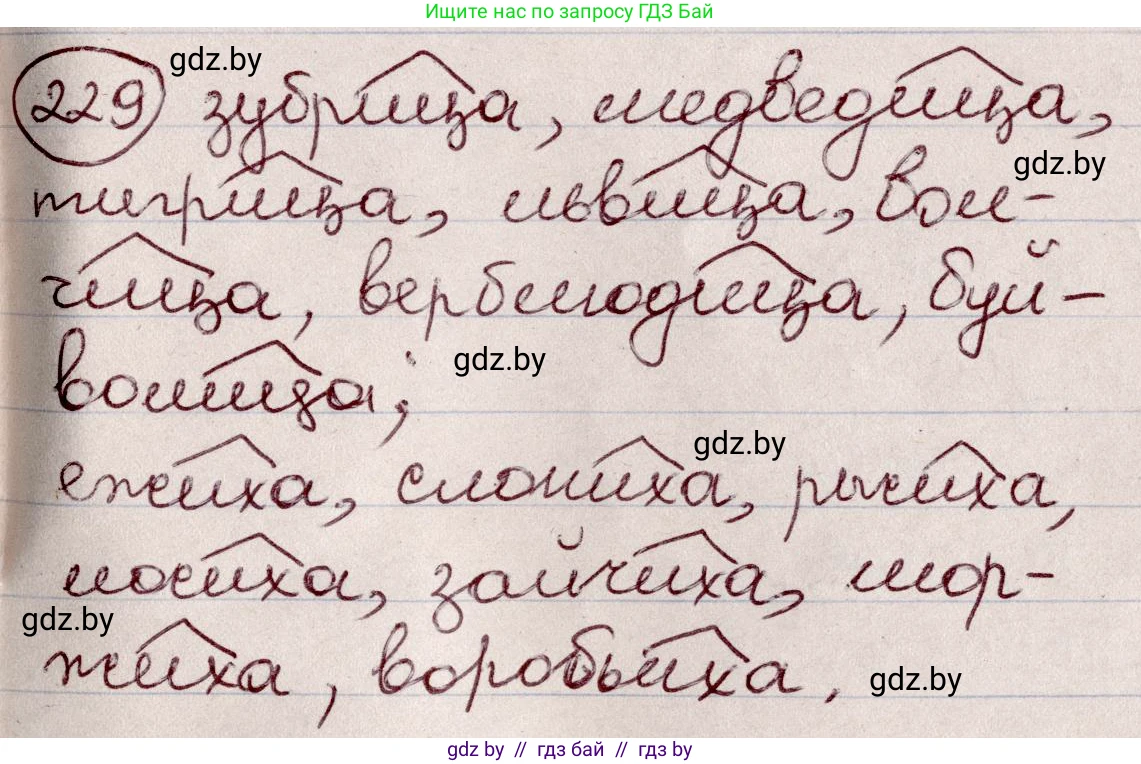 Ищите нас по запросу ГДЗ Бай
229 gdz.by зубрица, медведица,
gdz.by
тигрица, львица, вол-
чица, верблюдица, буй-
волица; gdz.by
gdz.by
ежиха, слониха, рысиха,
лосиха, зайчиха, мор-
gdz.by
жиха, воробьиха. gdz.by
gdz by // гдз бай // гдз by